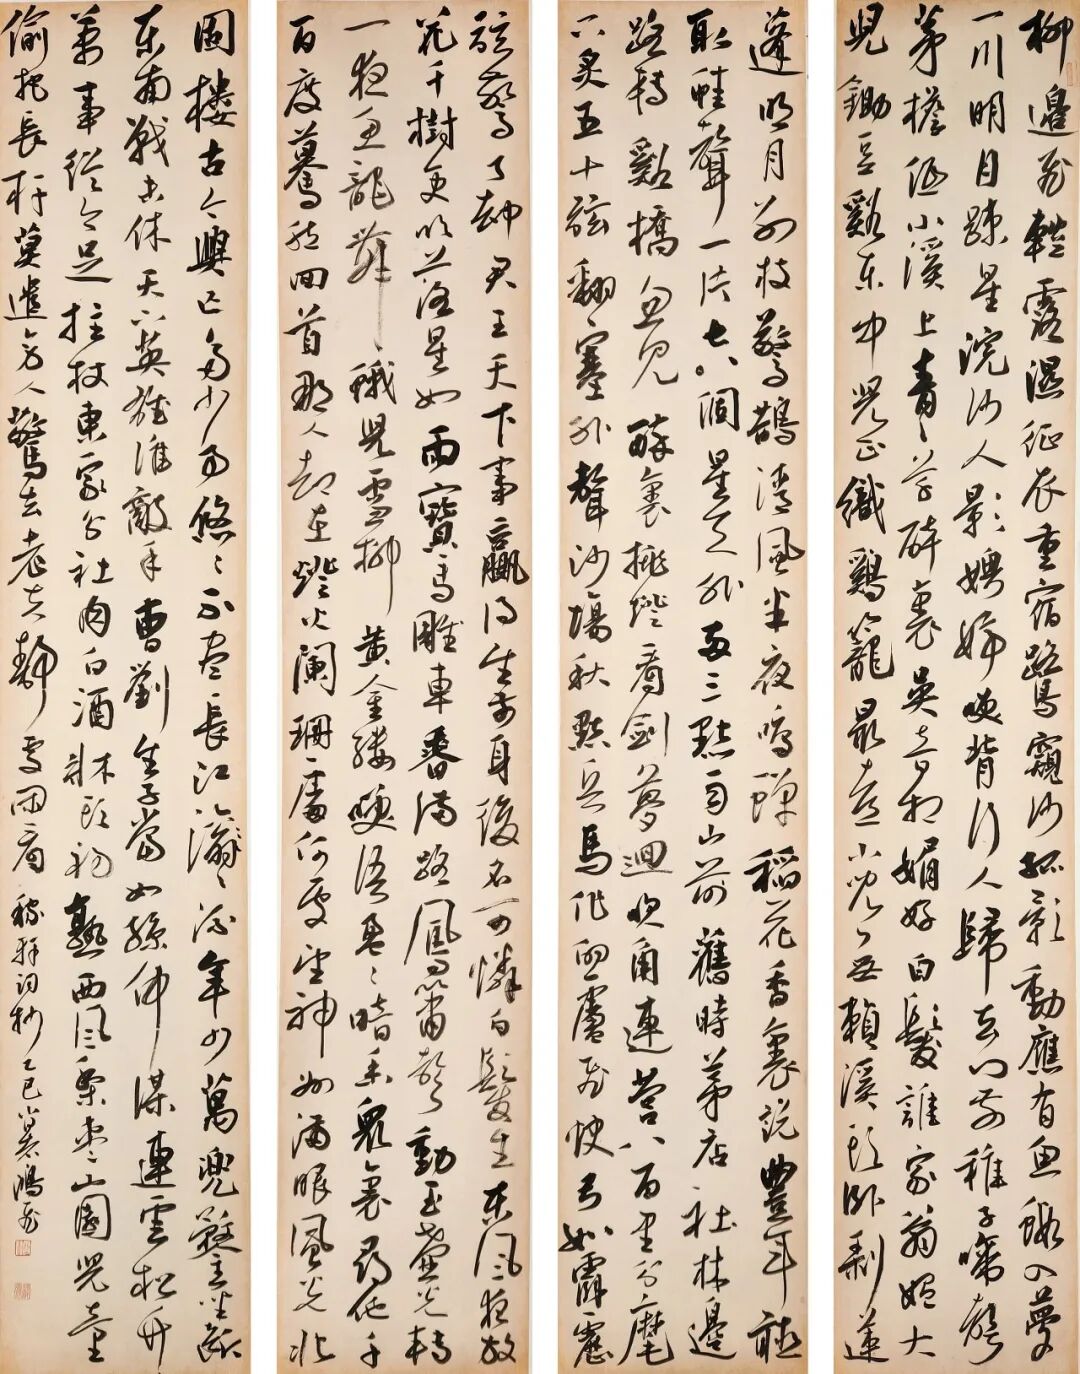 柳邊飛鞚露濕征衣重宿鷺窺沙孤影動應有魚蝦入夢
一川明月疎星浣沙人影娉婷咲背行人歸去門前稚子啼聲
茅檐低小溪上青青草醉裏吳音相媚好白髮誰家翁媼大
兒鋤豆谿東中兒正織鷄籠最喜小兒亡賴溪頭卧剥蓮
蓬明月別枝驚鵲清風半夜鳴蟬稻花香裏説豐年聽
取蛙聲一片七八個星天外兩三點雨山前舊時茅店社林邊
路轉谿橋忽見醉裏挑燈看劍夢迴吹角連營八百里分麾
下炙五十弦翻塞外聲沙場秋點兵馬作的盧飛快弓如霹靂
弦驚了却君王天下事贏得生前身後名可憐白髮生東風夜放
花千樹更吹落星如雨寶馬雕車香滿路鳳簫聲動玉壺光轉
一夜魚龍舞蛾兒雪柳黄金縷咲語盈盈暗香衆裏尋他千
百度驀然回首那人却在燈火闌珊處何處望神州滿眼風光北
固樓古今興亡多少事悠悠不盡長江滾滾流年少萬兜鍪坐斷
東南戰未休天下英雄誰敵手曹劉生子當如孫仲謀連雲松竹
萬事從今足拄杖東家分社肉白酒牀頭初熟西風梨棗山園兒童
偷把長杆莫遣旁人驚去老夫靜處閒看 稼軒詞抄 乙巳 鴻飛